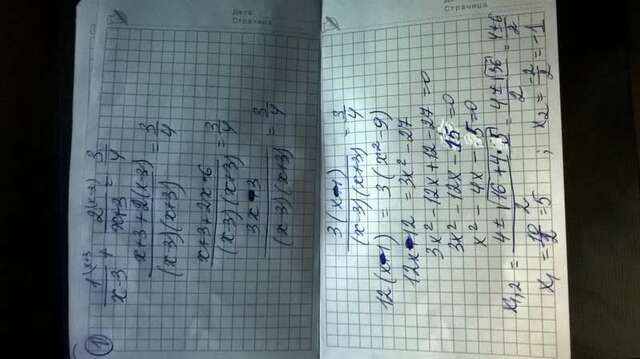 1) 1^(x+3 / (x-3) + 2^(x-3) / (x+3) = 3/4
(x+3+2(x-3)) / ((x-3)(x+3)) = 3/4
(x+3+2x-6) / ((x-3)(x+3)) = 3/4
(3x-3) / ((x-3)(x+3)) = 3/4
3(x-1) / ((x-3)(x+3)) = 3/4
12(x-1) = 3(x²-9)
12x-12 = 3x²-27
3x²-12x+12-27=0
3x²-12x-15=0
x²-4x-5=0
x₁,₂ = (4±√(16+4·5)) / 2 = (4±√36) / 2 = (4±6) / 2
x₁ = 10/2 = 5 ; x₂ = -2/2 = -1